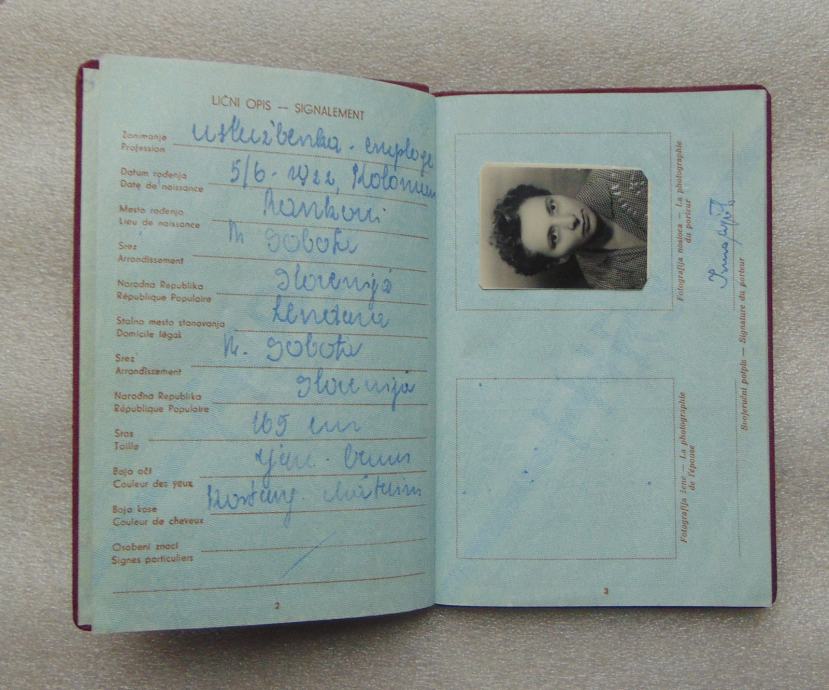 LIČNI OPIS — SIGNALEMENT
Zanimanje
Profession
uslužbenka - employe
Datum rođenja
Date de naissance
5/6-1922,
Mesto rođenja
Lieu de naissance
Srez
Arrondissement
M. Sobota
Narodna Republika
République Populaire
Slovenija
Stalno mesto stanovanja
Domicile légal
Lendava
Srez
Arrondissement
M. Sobota
Narodna Republika
République Populaire
Slovenija
Stas
Taille
165 cm
Boja oči
Couleur des yeux
Boja kose
Couleur de cheveux
Osobeni znaci
Signes particuliers
2
Fotografija nosioca — La photographie
du porteur
Svojeručni potpis — Signature du porteur
Fotografija žene — La photographie
de l'épouse
3